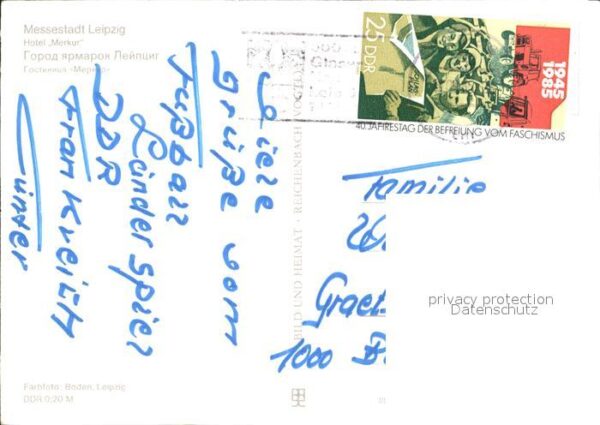 Messestadt Leipzig
Hotel „Merkur"
Город ярмарок Лейпциг
Гостиница «Меркур»
Viele
Grüße vom
Fußball
Länderspiel
DDR
Frankreich
Günter
BILD UND HEIMAT · REICHENBACH
25 DDR
1945
1985
40. JAHRESTAG DER BEFREIUNG VOM FASCHISMUS
Familie
Graet
1000
privacy protection
Datenschutz
Farbfoto: Boden, Leipzig
DDR 0,20 M